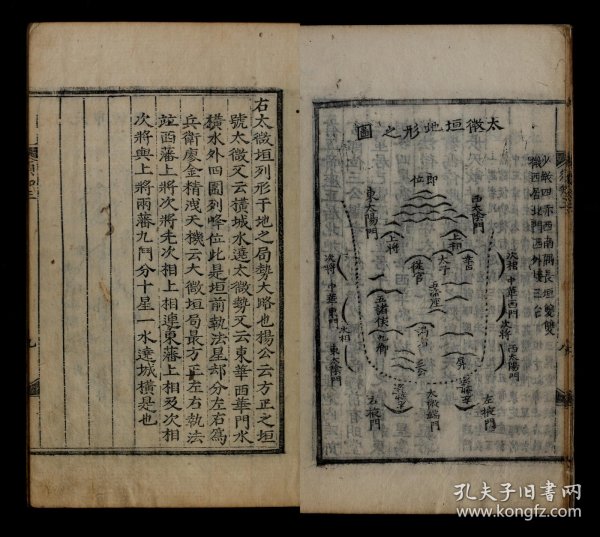 太微垣地形之圖
少微四赤西南隅長垣雙雙
微西居北門西外接三台
即位
東太陽門
西太陰門
上將
上相
次將
從官
太子
幸臣
次相
中華東門
中華西門
五帝座
次將
次相
五諸侯
九卿
西太陽門
東太陰門
屏
左掖門
太微端門
右太微垣列形于地之局勢大略也揚公云方正之垣
號太微又云橫城水遶太微勢又云東華西華門水
橫水外四圍列峰位此是垣前執法星却分左右爲
兵衛廖金精洩天機云大微垣局最方正左右執法
竝酉藩上將次將先次相上相連東藩上相及次相
次將與上將兩藩九門分十星一水遶城橫是也
九
孔夫子旧书网
www.kongfz.com